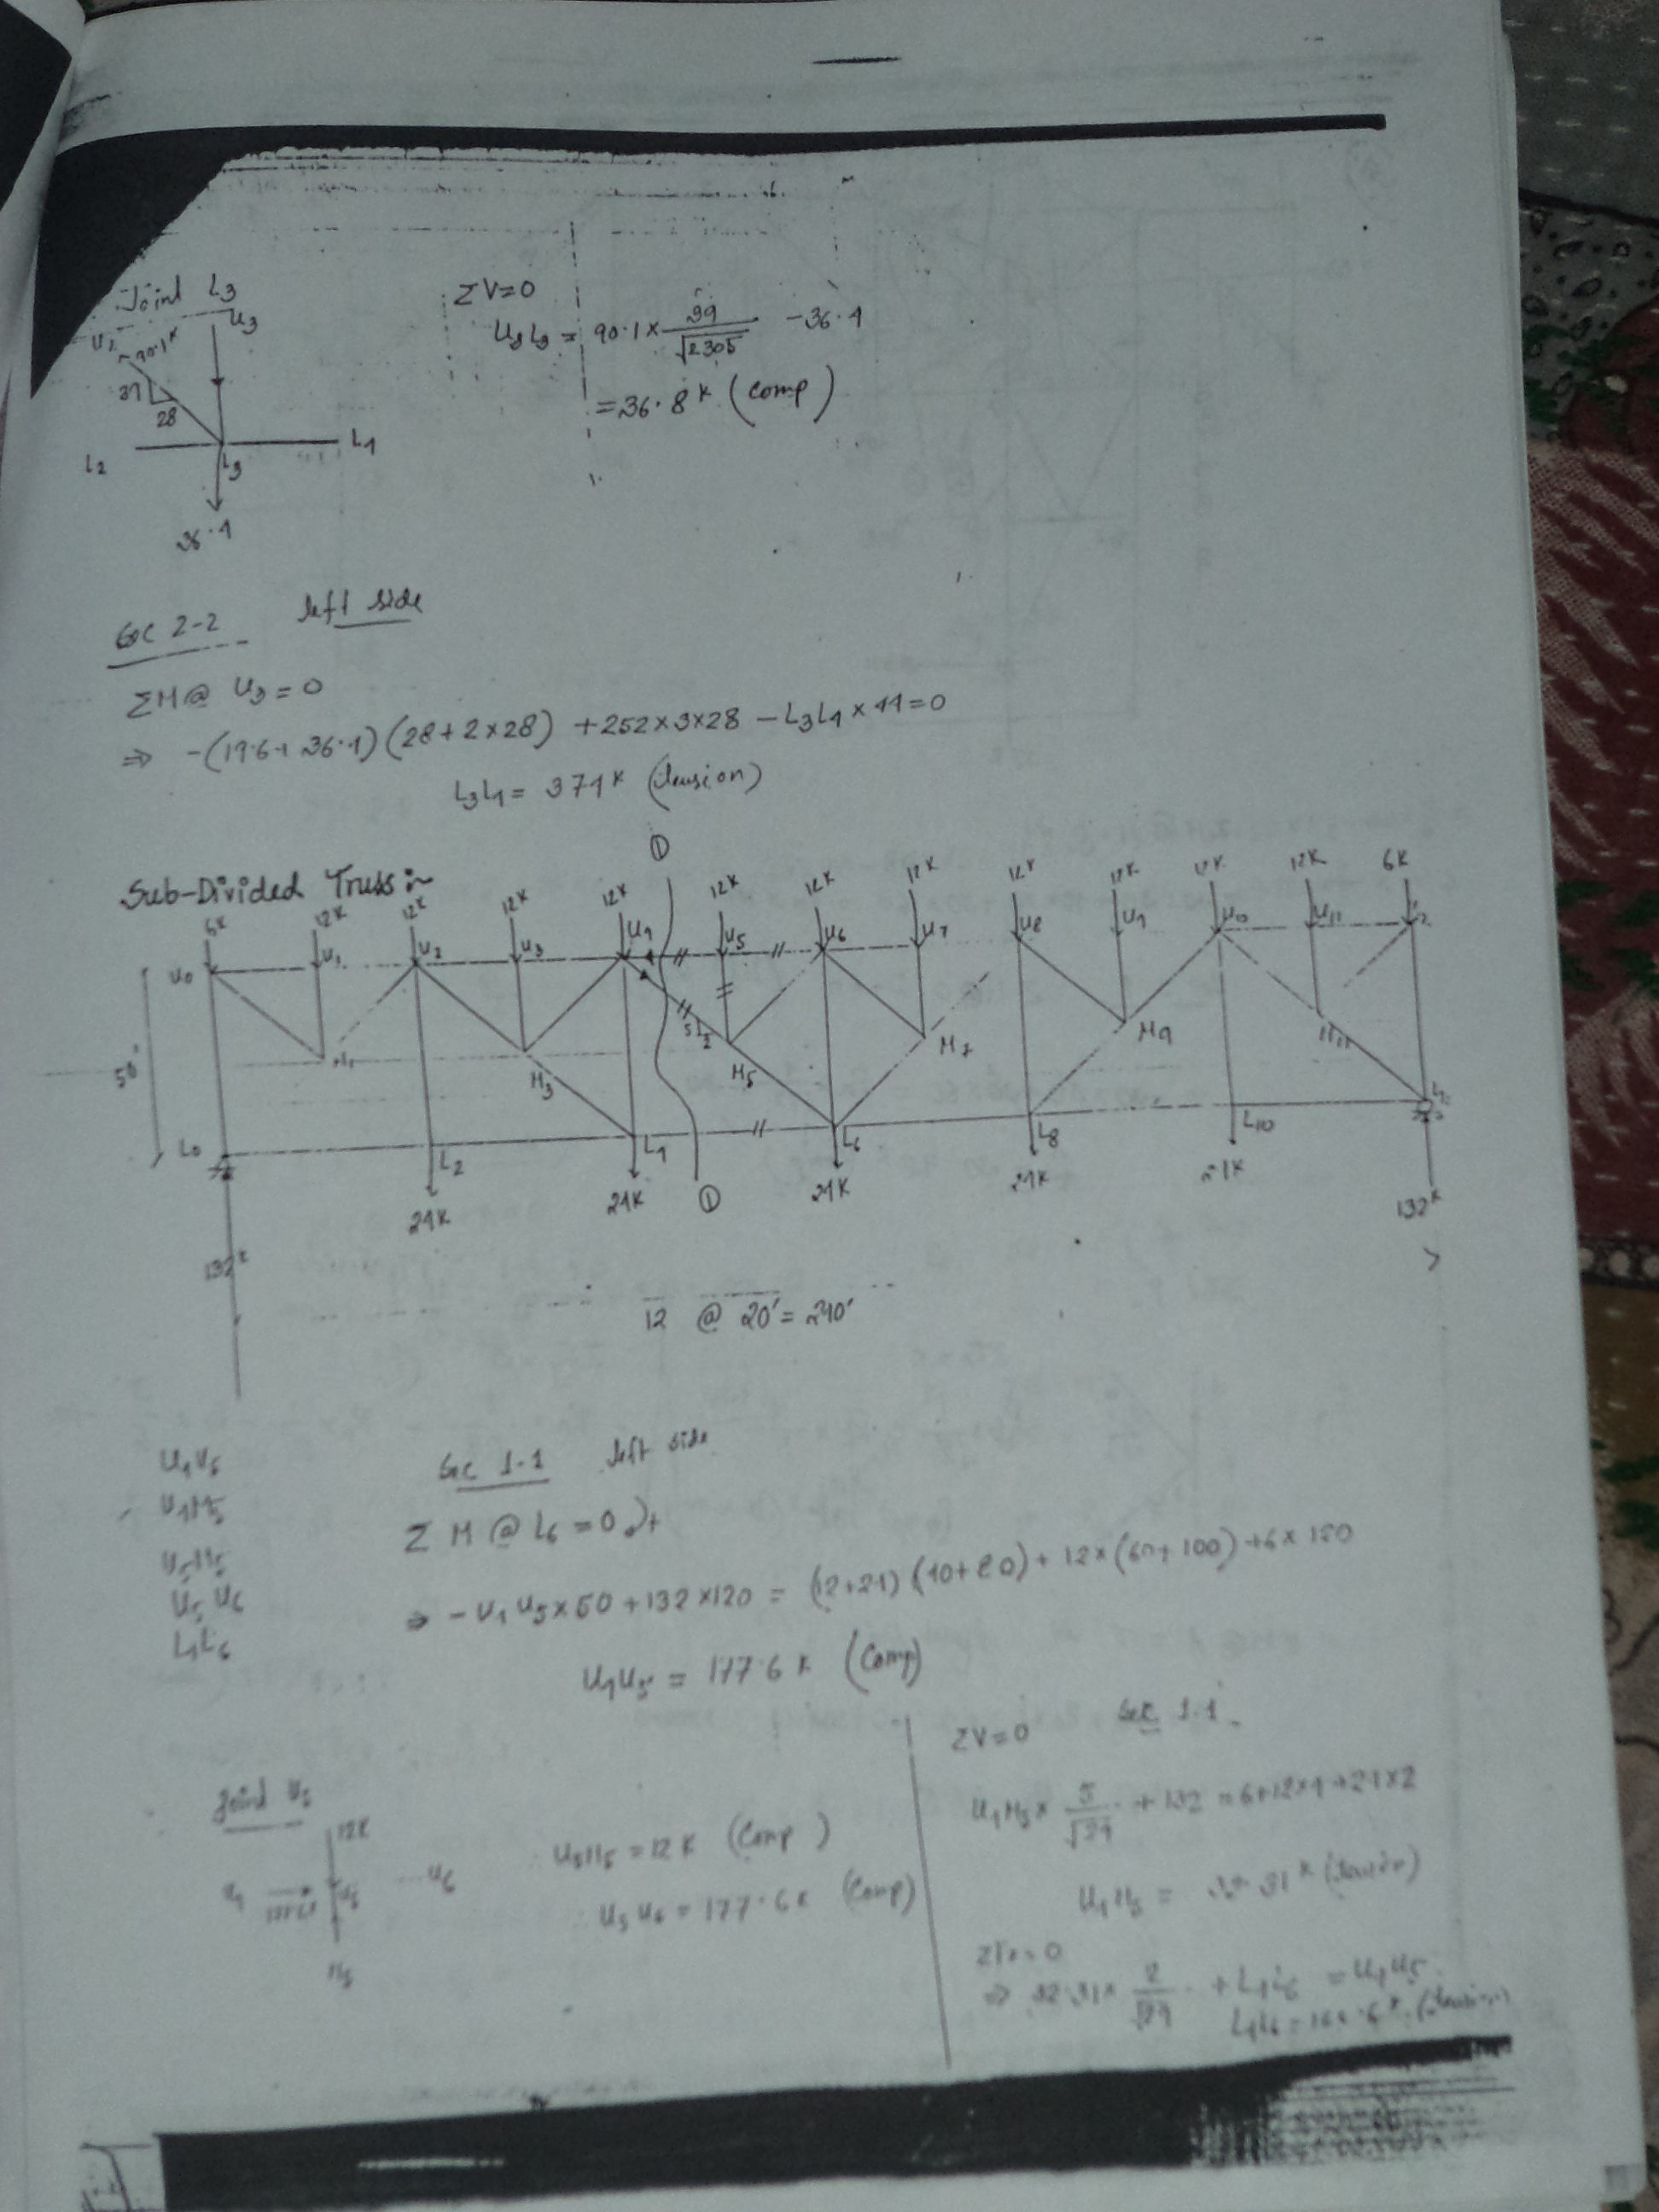 Joint L3
U3
90.1K
28
L2
L3
L4
36.4
ΣV=0
U3L3 = 90.1 × 39/√2305 - 36.4
= 36.8K (comp)
Sec 2-2 left side
ΣM@ U3 = 0
⇒ -(19.6+36.4)(28+2×28) +252×3×28 - L3L4×44=0
L3L4 = 374K (tension)
Sub-Divided Truss:~
①
6K 12K 12K 12K 12K 12K 12K 12K 12K 12K 12K 12K 6K
U0 U1 U2 U3 U4 U5 U6 U7 U8 U9 U10 U11
50'
M1 M3 M5 M7 M9 M11
5 2
L0 L2 L4 L6 L8 L10 L12
24K 24K 24K 24K 24K
①
132K 132K
12 @ 20' = 240'
U4U5
U4M5
U5M5
U5U6
L4L6
Sec 1-1 left side
Σ M @ L6 = 0 +
⇒ -U4U5×50 +132×120 = (12+24)(40+80)+12×(60+100)+6×120
U4U5 = 177.6K (Comp)
Joint U5
12K
U4 U5 U6
M5
U5M5 = 12K (Comp)
U5U6 = 177.6K (Comp)
ΣV=0 Sec 1-1
U4M5 × 5/√29 + 132 = 6+12×4+24×2
U4M5 = 32.31K (Tension)
ΣFx=0
⇒ 32.31× 2/√29 + L4L6 = U4U5